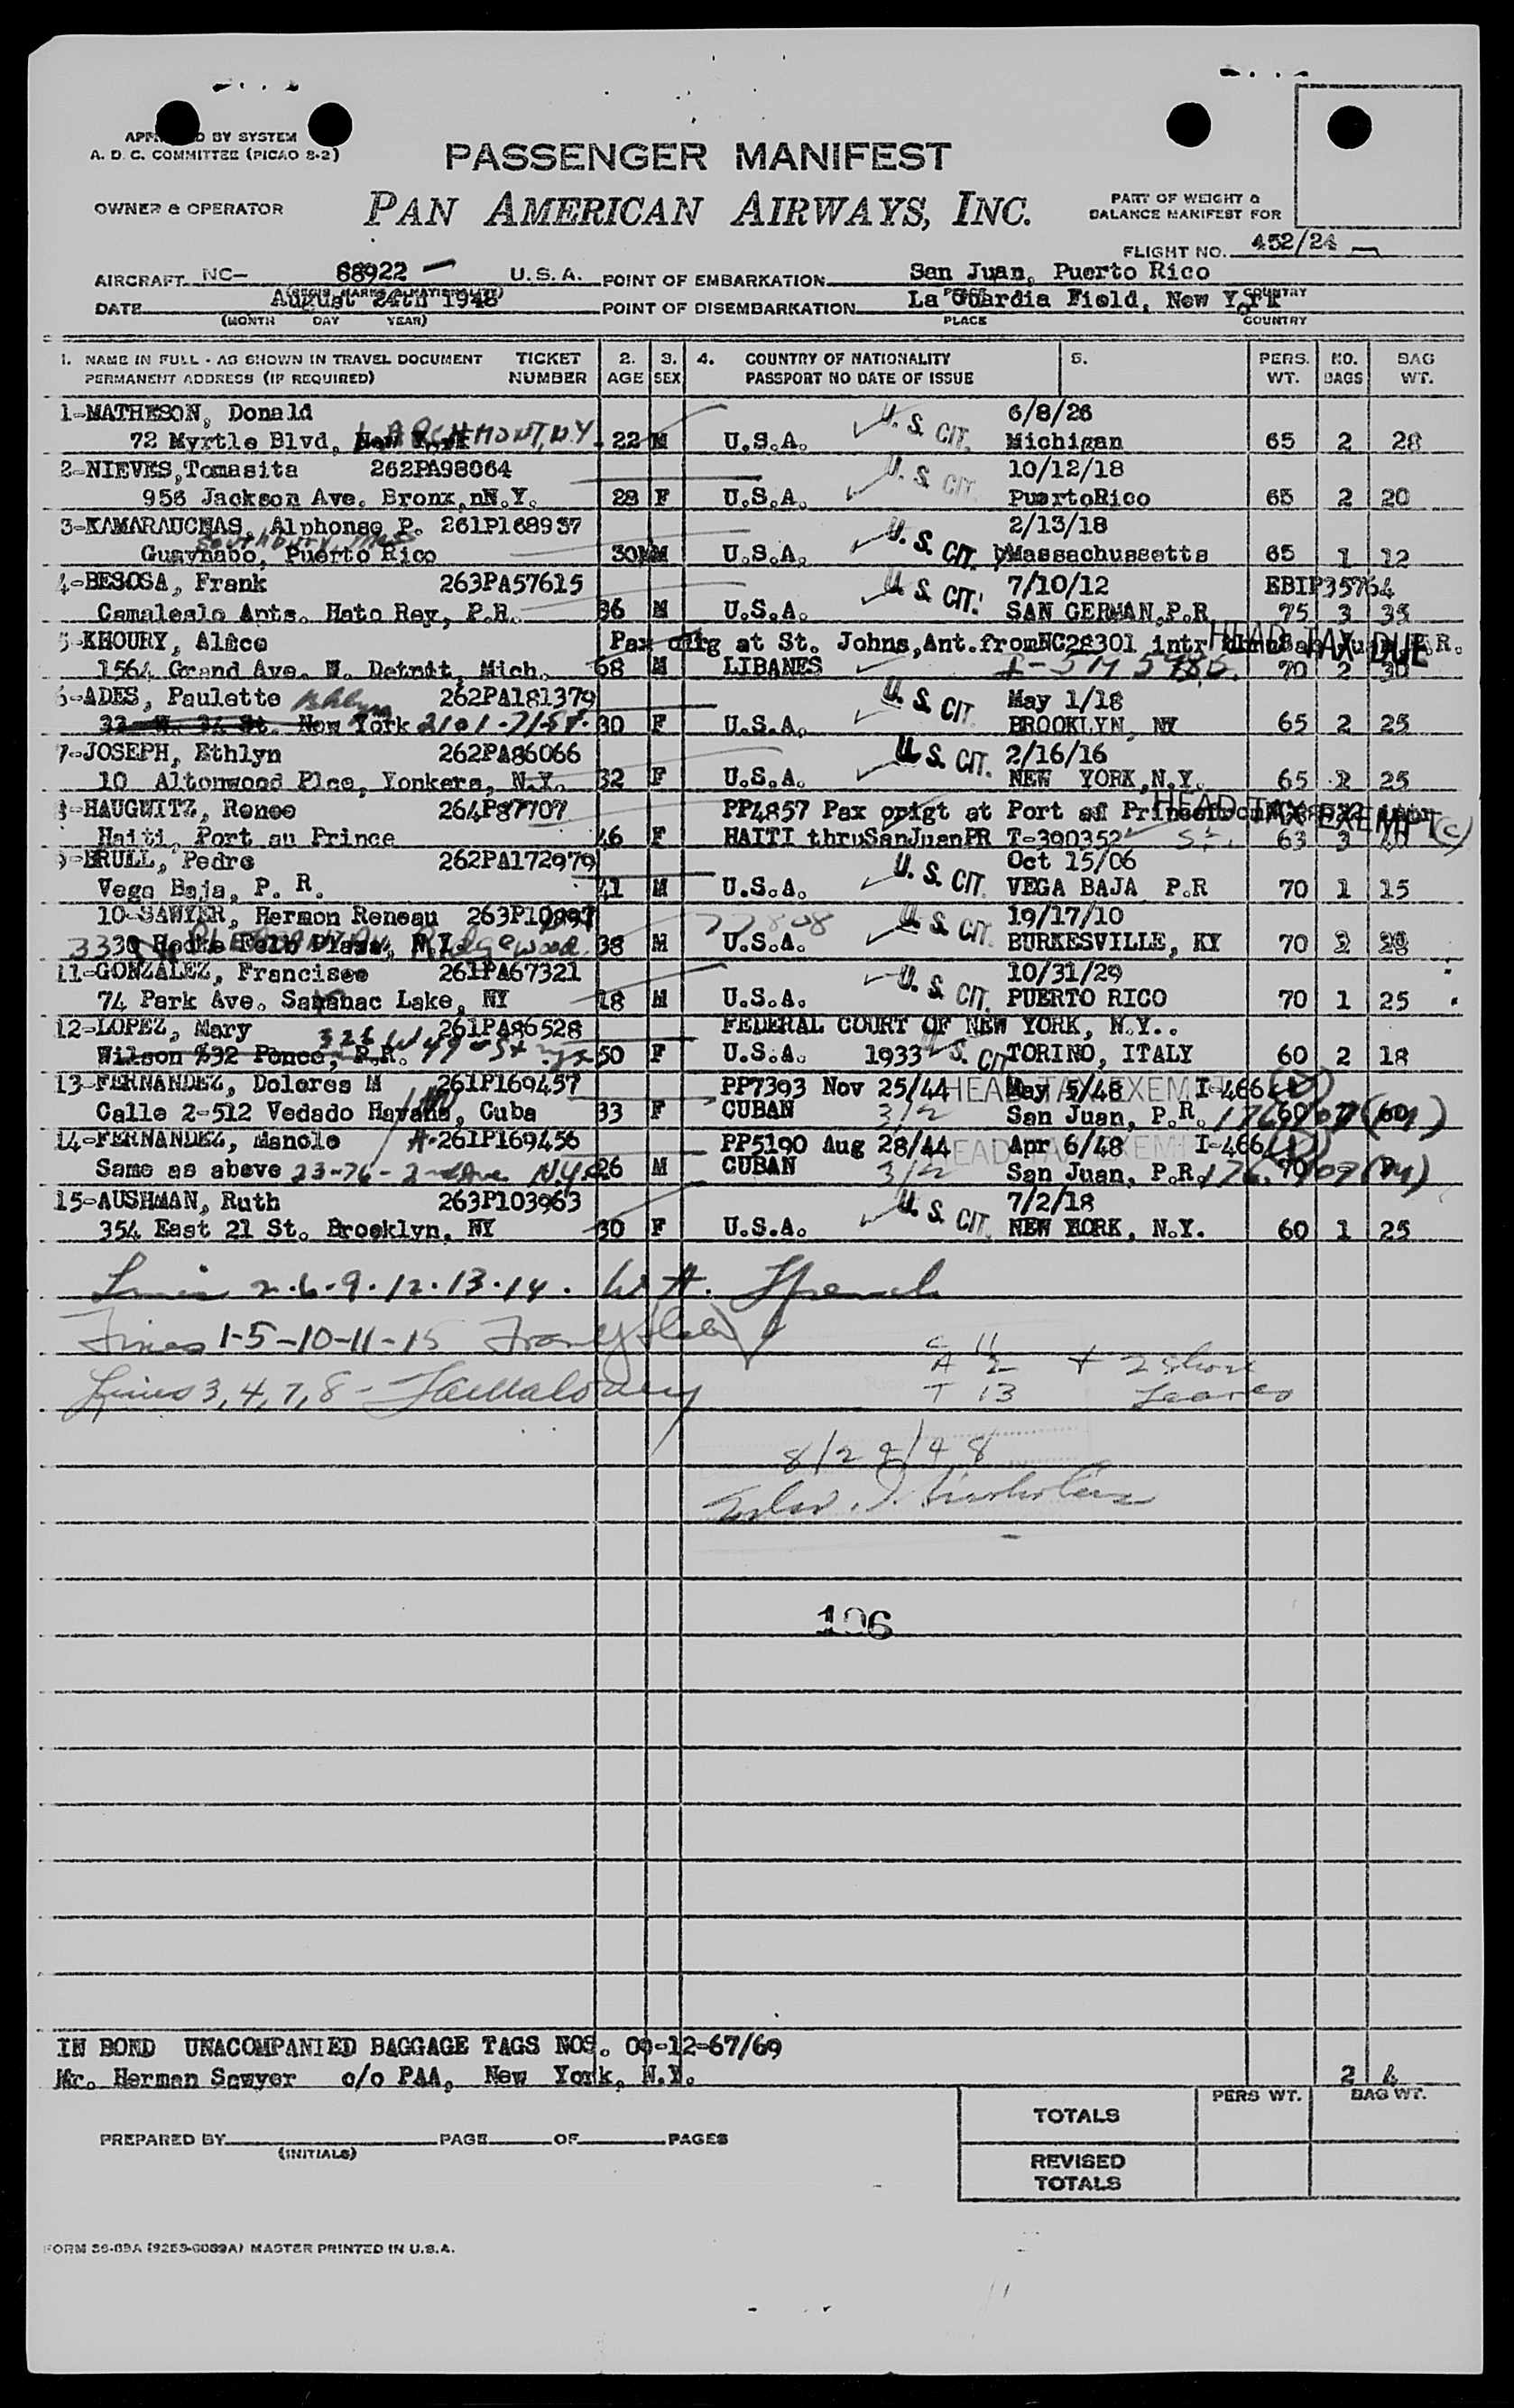 APPROVED BY SYSTEM
A. D. C. COMMITTEE (PICAO S-2)
PASSENGER MANIFEST
OWNER & OPERATOR
PAN AMERICAN AIRWAYS, INC.
PART OF WEIGHT &
BALANCE MANIFEST FOR
FLIGHT NO. 452/24
AIRCRAFT NC- 88922 U.S.A. POINT OF EMBARKATION San Juan, Puerto Rico
DATE August 24th 1948 POINT OF DISEMBARKATION La Guardia Field, New York
(MONTH DAY YEAR) PLACE COUNTRY
1. NAME IN FULL - AS SHOWN IN TRAVEL DOCUMENT TICKET 2. 3. 4. COUNTRY OF NATIONALITY 5. PERS. NO. BAG
PERMANENT ADDRESS (IF REQUIRED) NUMBER AGE SEX PASSPORT NO DATE OF ISSUE WT. BAGS WT.
1-MATHESON, Donald U. S. CIT. 6/8/26
72 Myrtle Blvd, LARCHMONT, N.Y. 22 M U.S.A. Michigan 65 2 28
2-NIEVES, Tomasita 262PA98064 U. S. CIT. 10/12/18
956 Jackson Ave. Bronx,nN.Y. 28 F U.S.A. PuertoRico 65 2 20
3-KAMARAUCHAS, Alphonse P. 261P168937 U. S. CIT. 2/13/18
Guaynabo, Puerto Rico 30 M U.S.A. Massachussetts 65 1 12
4-BESOSA, Frank 263PA57615 U. S. CIT. 7/10/12 EBIP35764
Camaleslo Apts. Hato Rey, P.R. 36 M U.S.A. SAN GERMAN,P.R 75 3 35
5-KHOURY, Alece Pax orig at St. Johns,Ant.fromNC28301 intr HEAD TAX DUE
1564 Grand Ave. W. Detroit, Mich. 68 M LIBANES 70 2 30
6-ADES, Paulette Bklyn 262PA181379 U. S. CIT. May 1/18
33 W. 34 St. New York 2101-71 St. 30 F U.S.A. BROOKLYN, NY 65 2 25
7-JOSEPH, Ethlyn 262PA86066 U. S. CIT. 2/16/16
10 Altonwood Plce, Yonkers, N.Y. 32 F U.S.A. NEW YORK,N.Y. 65 2 25
8-HAUGWITZ, Renee 264P87707 PP4857 Pax origt at Port au Prince HEAD TAX EXEMPT (C)
Haiti, Port au Prince 46 F HAITI thruSanJuanPR T-300352 63 3 40
9-BRULL, Pedro 262PA172979 U. S. CIT. Oct 15/06
Vega Baja, P. R. 41 M U.S.A. VEGA BAJA P.R 70 1 15
10-SAWYER, Hermon Reneau U. S. CIT. 19/17/10
38 M U.S.A. BURKESVILLE, KY 70 2
11-GONZALEZ, Francisco 261PA67321 U. S. CIT. 10/31/29
74 Park Ave. Saranac Lake, NY 18 M U.S.A. PUERTO RICO 70 1 25
12-LOPEZ, Mary 261PA86528 FEDERAL COURT OF NEW YORK, N.Y..
Wilson #32 Ponce, P.R. 50 F U.S.A. 1933 U. S. CIT. TORINO, ITALY 60 2 18
13-FERNANDEZ, Dolores M 261P169457 PP7393 Nov 25/44 HEAD TAX EXEMPT May 5/48 I-466
Calle 2-512 Vedado Havana, Cuba 33 F CUBAN 3/2 San Juan, P.R. 60
14-FERNANDEZ, Manolo 261P169456 PP5190 Aug 28/44 HEAD TAX EXEMPT Apr 6/48 I-466
Same as above 23-76-2nd Ave N.Y. 26 M CUBAN 3/2 San Juan, P.R. 70
15-AUSHMAN, Ruth 263P103963 U. S. CIT. 7/2/18
354 East 21 St. Brooklyn, NY 30 F U.S.A. NEW YORK, N.Y. 60 1 25
Lines 2.6.9.12.13.14.
Lines 1-5-10-11-15
C 11
A 2
Lines 3, 4, 7, 8 -
T 13
196
IN BOND UNACOMPANIED BAGGAGE TAGS NOS. 09-12-67/69
Mr. Herman Sawyer c/o PAA, New York, N.Y. 2 4
PERS WT. BAG WT.
TOTALS
PREPARED BY PAGE OF PAGES
(INITIALS)
REVISED
TOTALS
MASTER PRINTED IN U.S.A.